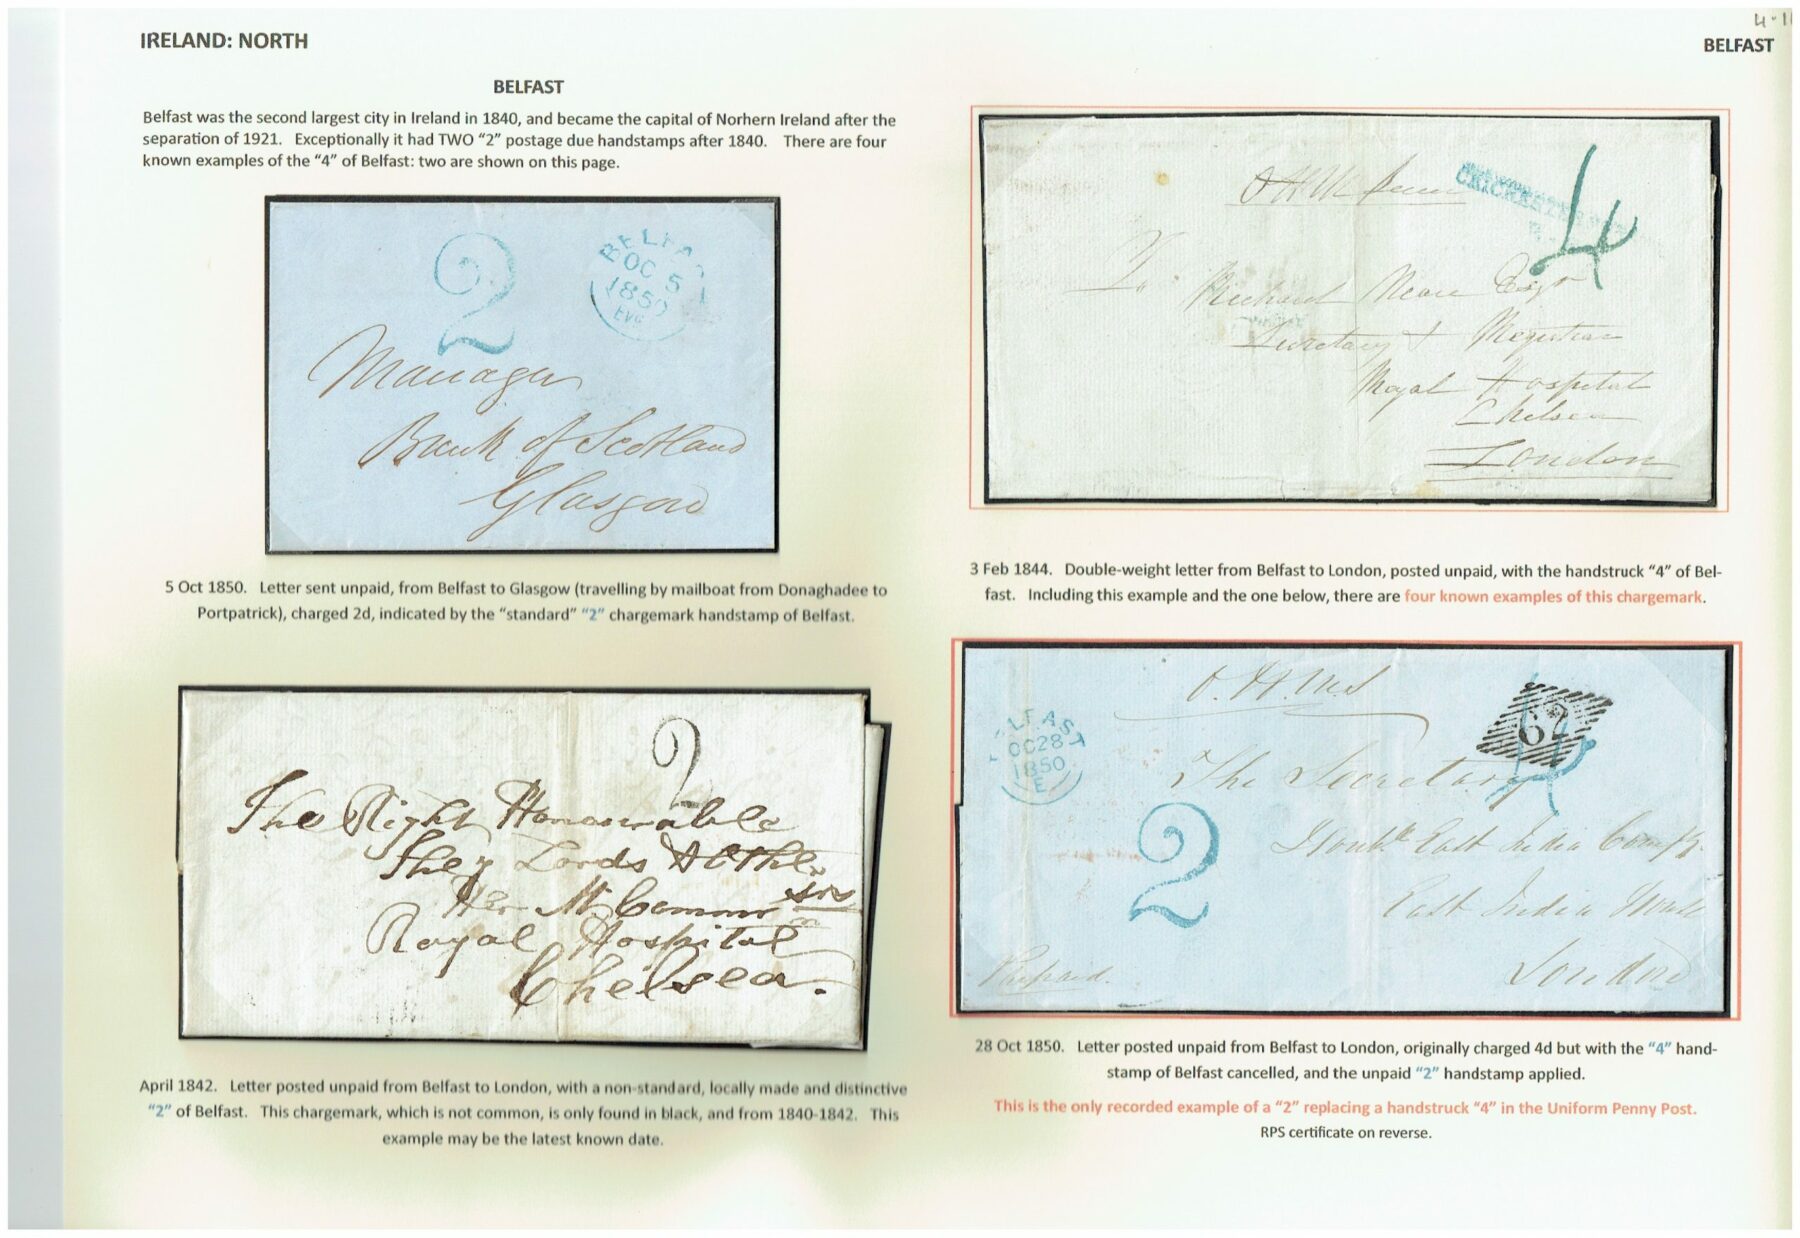 4·1
IRELAND: NORTH
BELFAST
BELFAST
Belfast was the second largest city in Ireland in 1840, and became the capital of Norhern Ireland after the
separation of 1921. Exceptionally it had TWO “2” postage due handstamps after 1840. There are four
known examples of the “4” of Belfast: two are shown on this page.
2
BELFA
OC 5
1850
EVG
Manager
Bank of Scotland
Glasgow
5 Oct 1850. Letter sent unpaid, from Belfast to Glasgow (travelling by mailboat from Donaghadee to
Portpatrick), charged 2d, indicated by the “standard” “2” chargemark handstamp of Belfast.
2
The Right Honourable
They Lords & Othe
Her M Comm
Royal Hospital
Chelsea.
April 1842. Letter posted unpaid from Belfast to London, with a non-standard, locally made and distinctive
“2” of Belfast. This chargemark, which is not common, is only found in black, and from 1840-1842. This
example may be the latest known date.
CHICHESTER
4
To Richard Neave Esqr
Secretary & Registrar
Royal Hospital
Chelsea
London
3 Feb 1844. Double-weight letter from Belfast to London, posted unpaid, with the handstruck “4” of Bel-
fast. Including this example and the one below, there are four known examples of this chargemark.
O.H.M.S
62
4
BELFAST
OC 28
1850
E
The Secretary
2
East India Comp
East India House
London
28 Oct 1850. Letter posted unpaid from Belfast to London, originally charged 4d but with the “4” hand-
stamp of Belfast cancelled, and the unpaid “2” handstamp applied.
This is the only recorded example of a “2” replacing a handstruck “4” in the Uniform Penny Post.
RPS certificate on reverse.